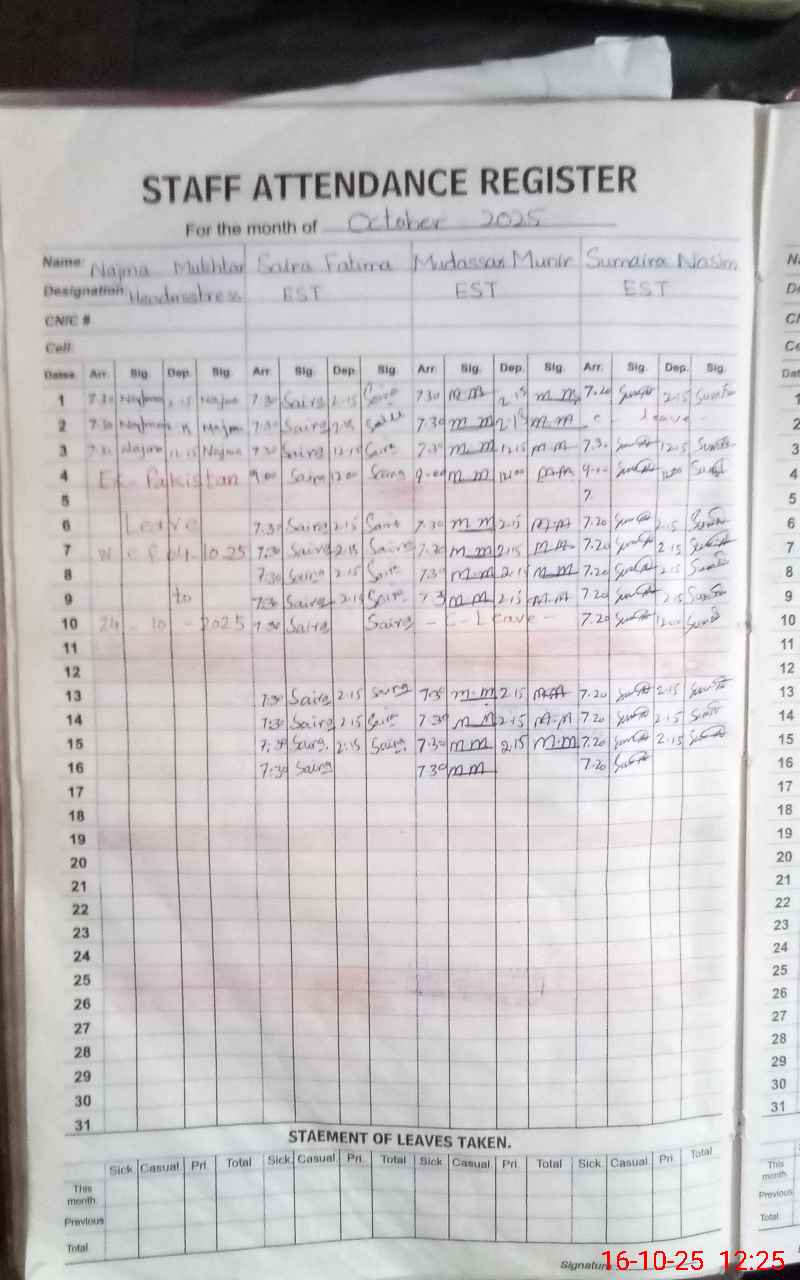 STAFF ATTENDANCE REGISTER
For the month of October 2025
Name: Najma Mukhtar Saira Fatima Mudassar Munir Sumaira Nasim
Designation: Headmistress EST EST EST
CNIC #
Cell:
Dates Arr. Sig. Dep. Sig. Arr. Sig. Dep. Sig. Arr. Sig. Dep. Sig. Arr. Sig. Dep. Sig.
1 7.30 Najma 2.15 Najma 7.30 Saira 2.15 Saira 7.30 M M 2.15 M M 7.20 2.15
2 7.30 Najma Najma 7.30 Saira 2.15 7.30 M M 2.15 M M leave -
3 7.30 Najma 12.15 Najma 7.30 Saira 12.15 Saira 7.30 M M 12.15 M.M 7.30 12.15
4 Ex- Pakistan 9.00 Saira 12.00 Saira 9.00 M M 12.00 M.M 9.00 12.00
5 7.
6 Leave 7.30 Saira 2.15 Saira 7.30 M M 2.15 M.M 7.20 2.15
7 w.e.f 04.10.25 7.30 Saira 2.15 Saira 7.30 M M 2.15 M.M 7.20 2.15
8 7.30 Saira 2.15 Saira 7.30 M M 2.15 M M 7.20 2.15
9 to 7.30 Saira 2.15 Saira 7.3 M M 2.15 M.M 7.20 2.15
10 24 - 10 - 2025 7.30 Saira Saira - C - Leave - 7.20 12.00
11
12
13 7.30 Saira 2.15 Saira 7.30 M.M 2.15 M.M 7.20 2.15
14 7:30 Saira 2.15 Saira 7.30 M M 2.15 M.M 7.20 2.15
15 7:30 Saira 2:15 Saira 7.30 M M 2.15 M.M 7.20 2.15
16 7:30 Saira 7.30 M M 7.20
17
18
19
20
21
22
23
24
25
26
27
28
29
30
31
STAEMENT OF LEAVES TAKEN.
Sick Casual Pri. Total Sick Casual Pri. Total Sick Casual Pri. Total Sick Casual Pri. Total
This month.
Previous
Total
Signatur
16-10-25 12:25